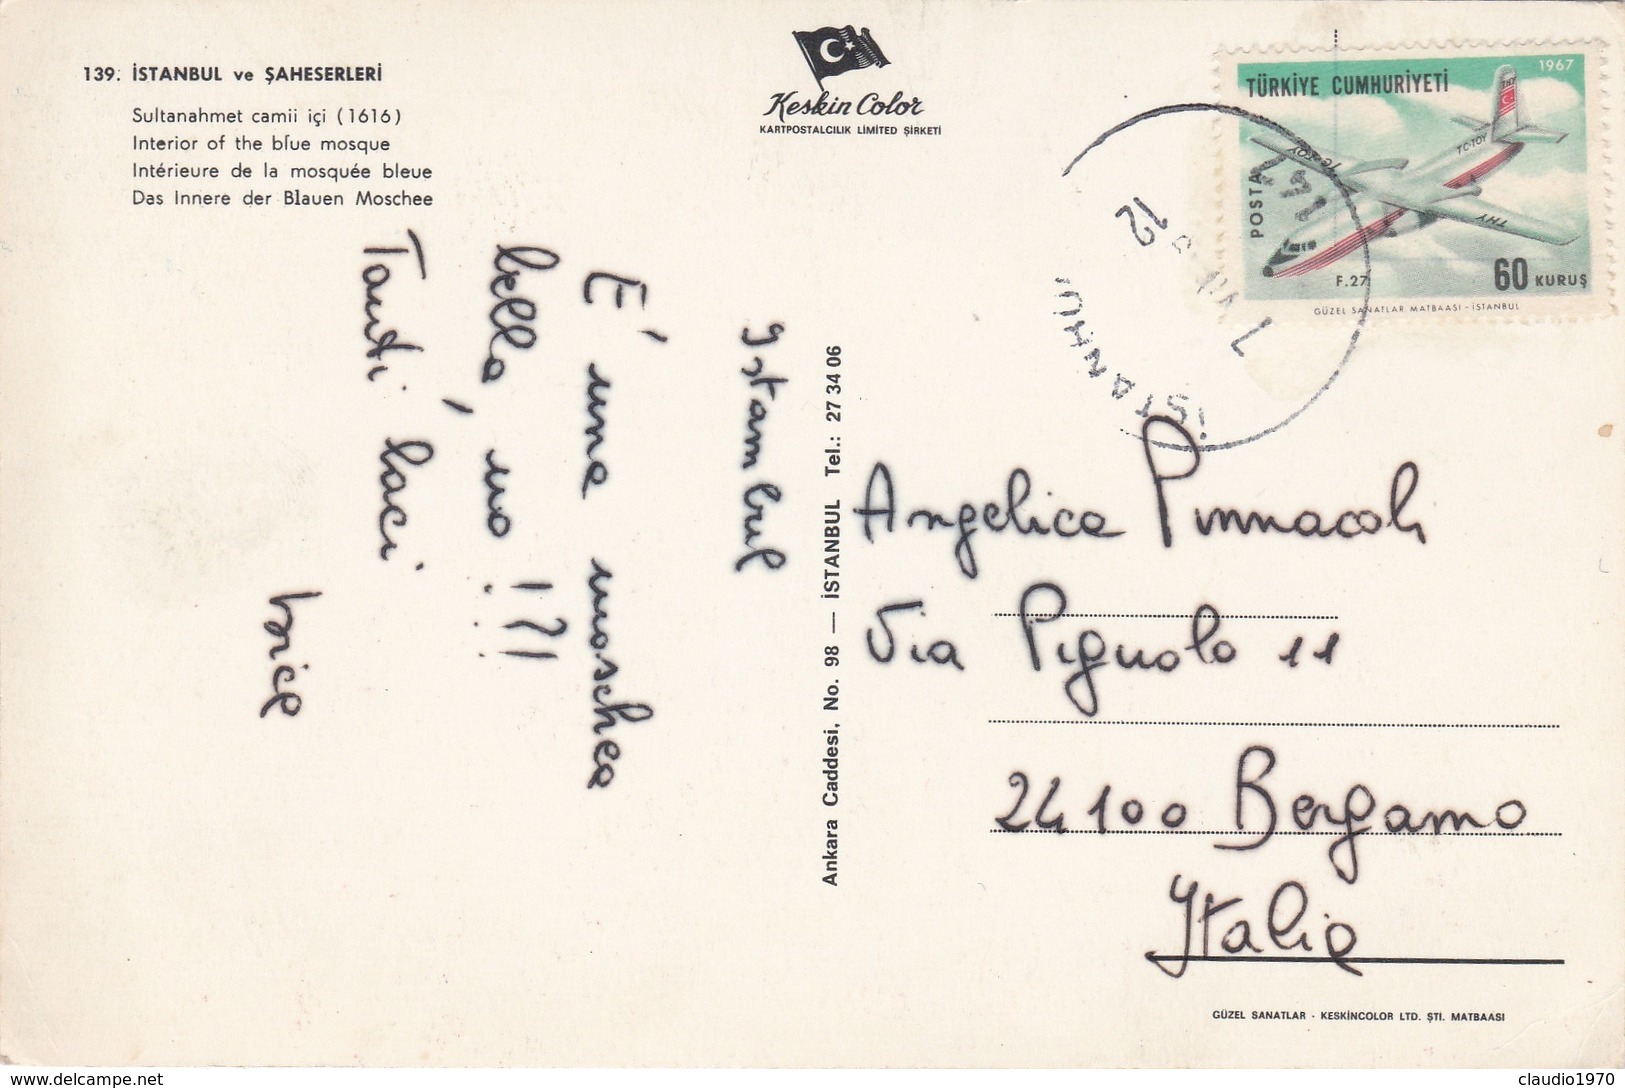 139. İSTANBUL ve ŞAHESERLERİ
Sultanahmet camii içi (1616)
Interior of the blue mosque
Intérieure de la mosquée bleue
Das Innere der Blauen Moschee
Keskin Color
KARTPOSTALCILIK LIMITED ŞİRKETİ
TÜRKİYE CUMHURİYETİ
1967
POSTA
THY
TC-TOY
TC-TOY
THY
F.27
60 KURUŞ
GÜZEL SANATLAR MATBAASI - İSTANBUL
12
İSTANBUL
Istambul
E' una moschea
bella, no!?!!
Tanti baci
Ankara Caddesi, No. 98 — İSTANBUL Tel.: 27 34 06
Angelica Pinnacoli
Via Pignolo 11
24100 Bergamo
Italia
GÜZEL SANATLAR - KESKİNCOLOR LTD. ŞTİ. MATBAASI
www.delcampe.net
claudio1970